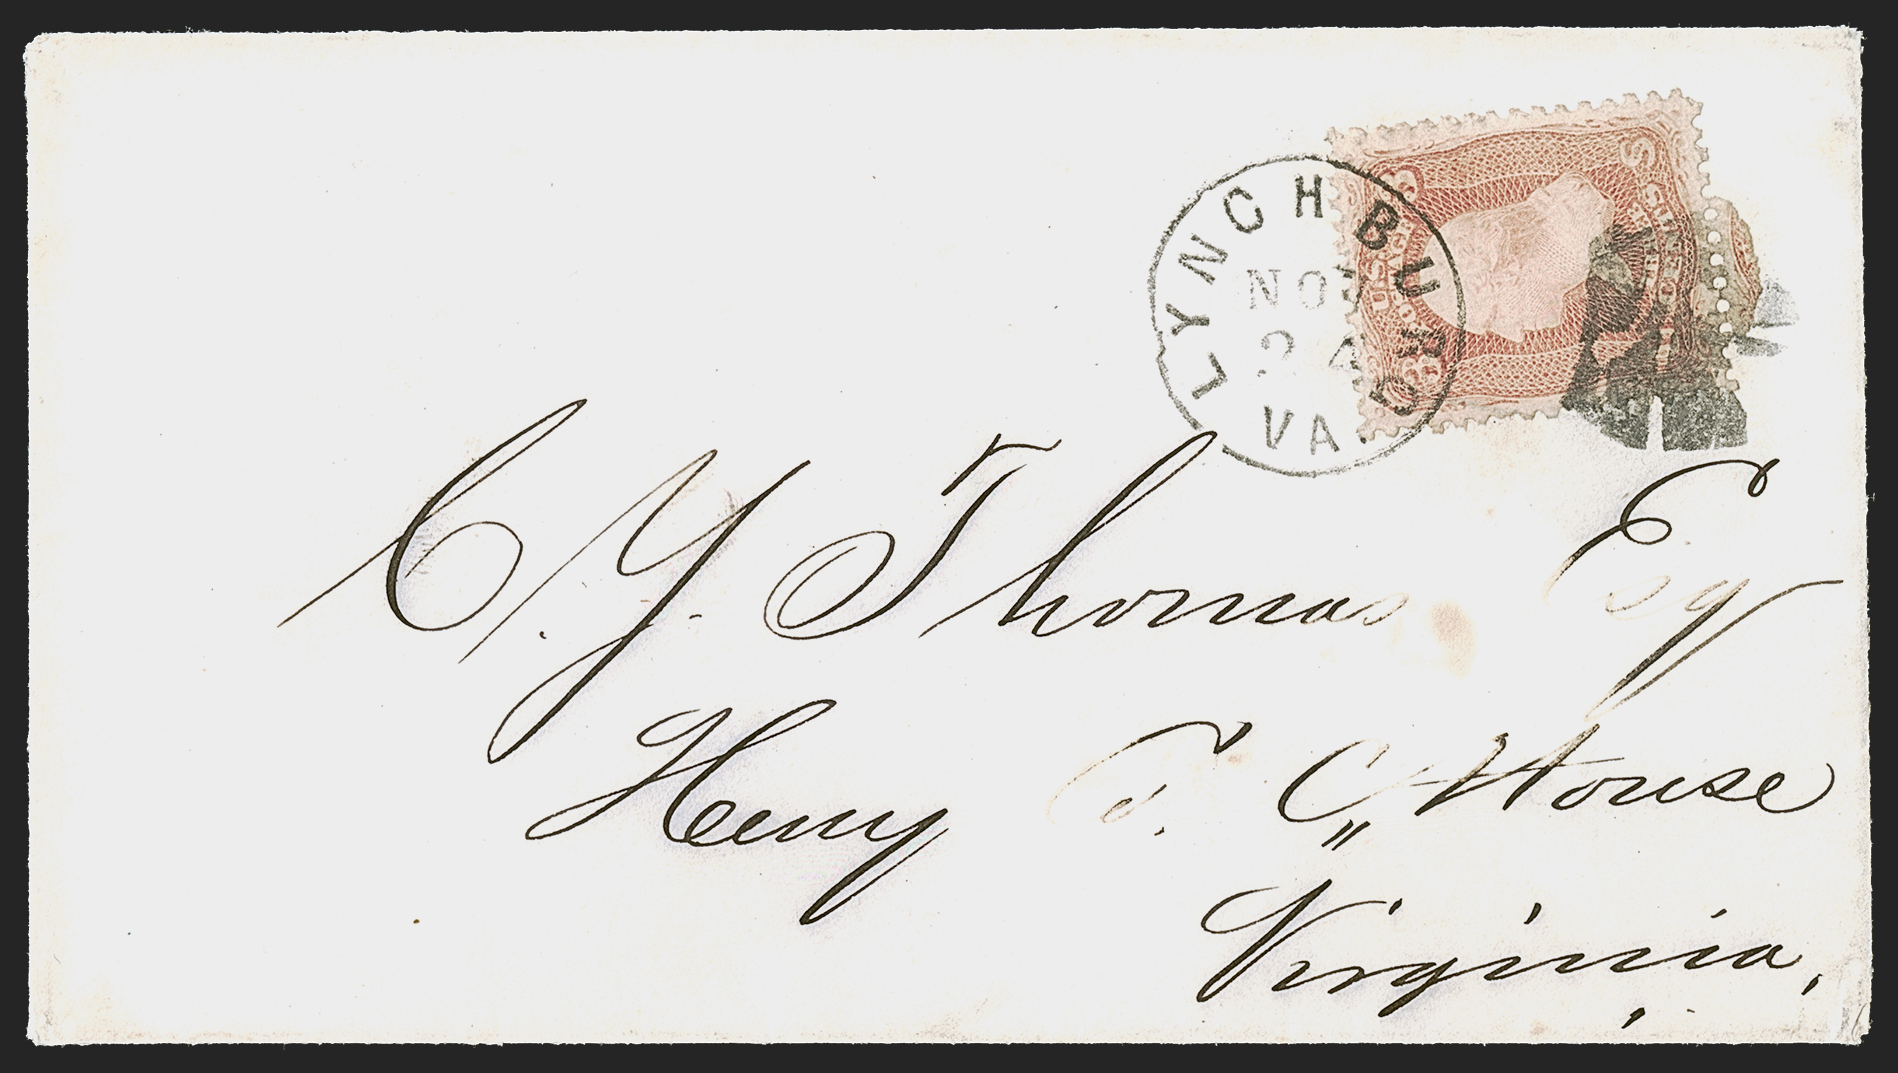 LYNCHBURG
NOV
24
VA
U.S. POSTAGE
3 3
C. Y. Thomas Esq
Henry C. C,, House
Virginia.